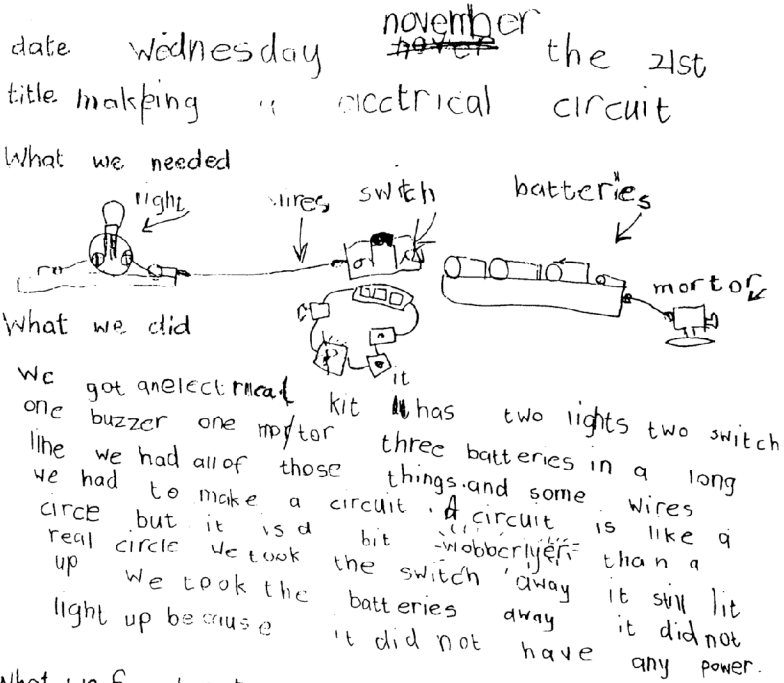 date wednesday november the 21st
title making a electrical circuit
What we needed
light wires switch batteries
mortor
What we did
We got anelectrical kit it has two lights two switch
one buzzer one mortor three batteries in a long
line we had all of those things.and some wires
we had to make a circuit. A circuit is like a
circe but it is a bit wobberlyer than a
real circle we took the switch away it still lit
up we took the batteries away it did not
light up because it did not have any power.
What we